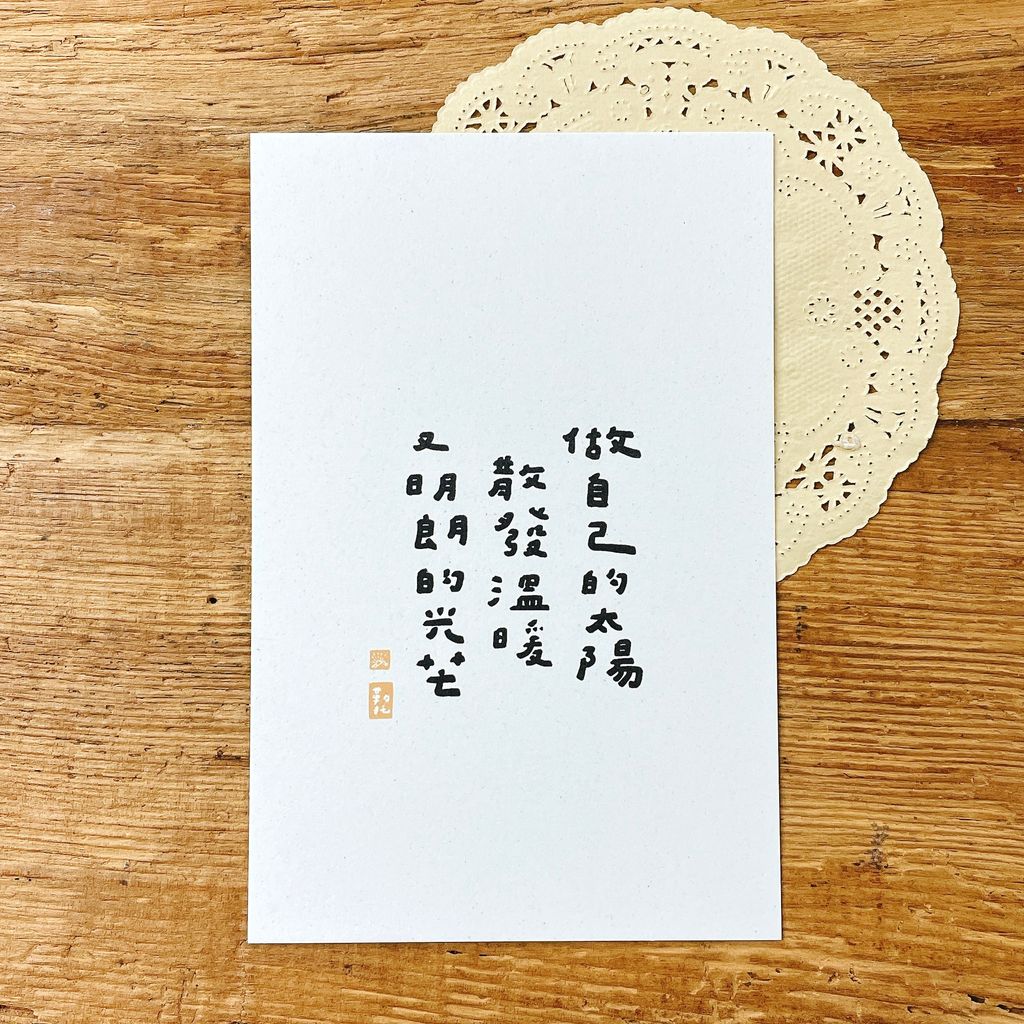 做自己的太陽
散發溫暖
又明朗的光芒